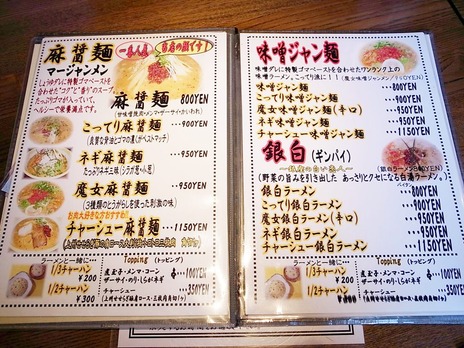 麻醤麺
一番人気
当店の顔です！
マージャンメン
しょうゆダレに特製ゴマペーストを
合わせた"コク"と"香り"のスープ。
たっぷりゴマが入っていて、
ヘルシーで栄養満点です。
麻醤麺 800YEN
こってり麻醤麺 …900YEN
(良質な背油とゴマの濃くがベストマッチ)
ネギ麻醤麺 …950YEN
魔女麻醤麺 …950YEN
(3種類のとうがらしを使った刺激の味)
お肉大好きな方おすすめ!!
チャーシュー麻醤麺 …1150YEN
ラーメンと一緒に…
1/3チャーハン
¥200
1/2チャーハン
¥300
Topping (トッピング)
煮玉子・メンマ・コーン
ザーサイ・のり・しらがネギ
100YEN
チャーシュー 350YEN
味噌ジャン麺
味噌ダレに特製ゴマペースト
を合わせたワンランク上の
味噌ラーメン、こってり濃いに!!
味噌ジャン麺 …800YEN
こってり味噌ジャン麺 …900YEN
魔女味噌ジャン麺(辛口) …950YEN
ネギ味噌ジャン麺 …950YEN
チャーシュー味噌ジャン麺 …1150YEN
銀白 (ギンパイ)
(銀白ラーメン800YEN)
(野菜の旨みを引き出した あっさりとクセになる白湯ラーメン)
銀白ラーメン …800YEN
こってり銀白ラーメン …900YEN
魔女銀白ラーメン(辛口) …950YEN
ネギ銀白ラーメン …950YEN
チャーシュー銀白ラーメン …1150YEN
ラーメンと一緒に…
1/3チャーハン
¥200
1/2チャーハン
¥300
Topping (トッピング)
煮玉子・メンマ・コーン
ザーサイ・のり・しらがネギ
100YEN
チャーシュー 350YEN